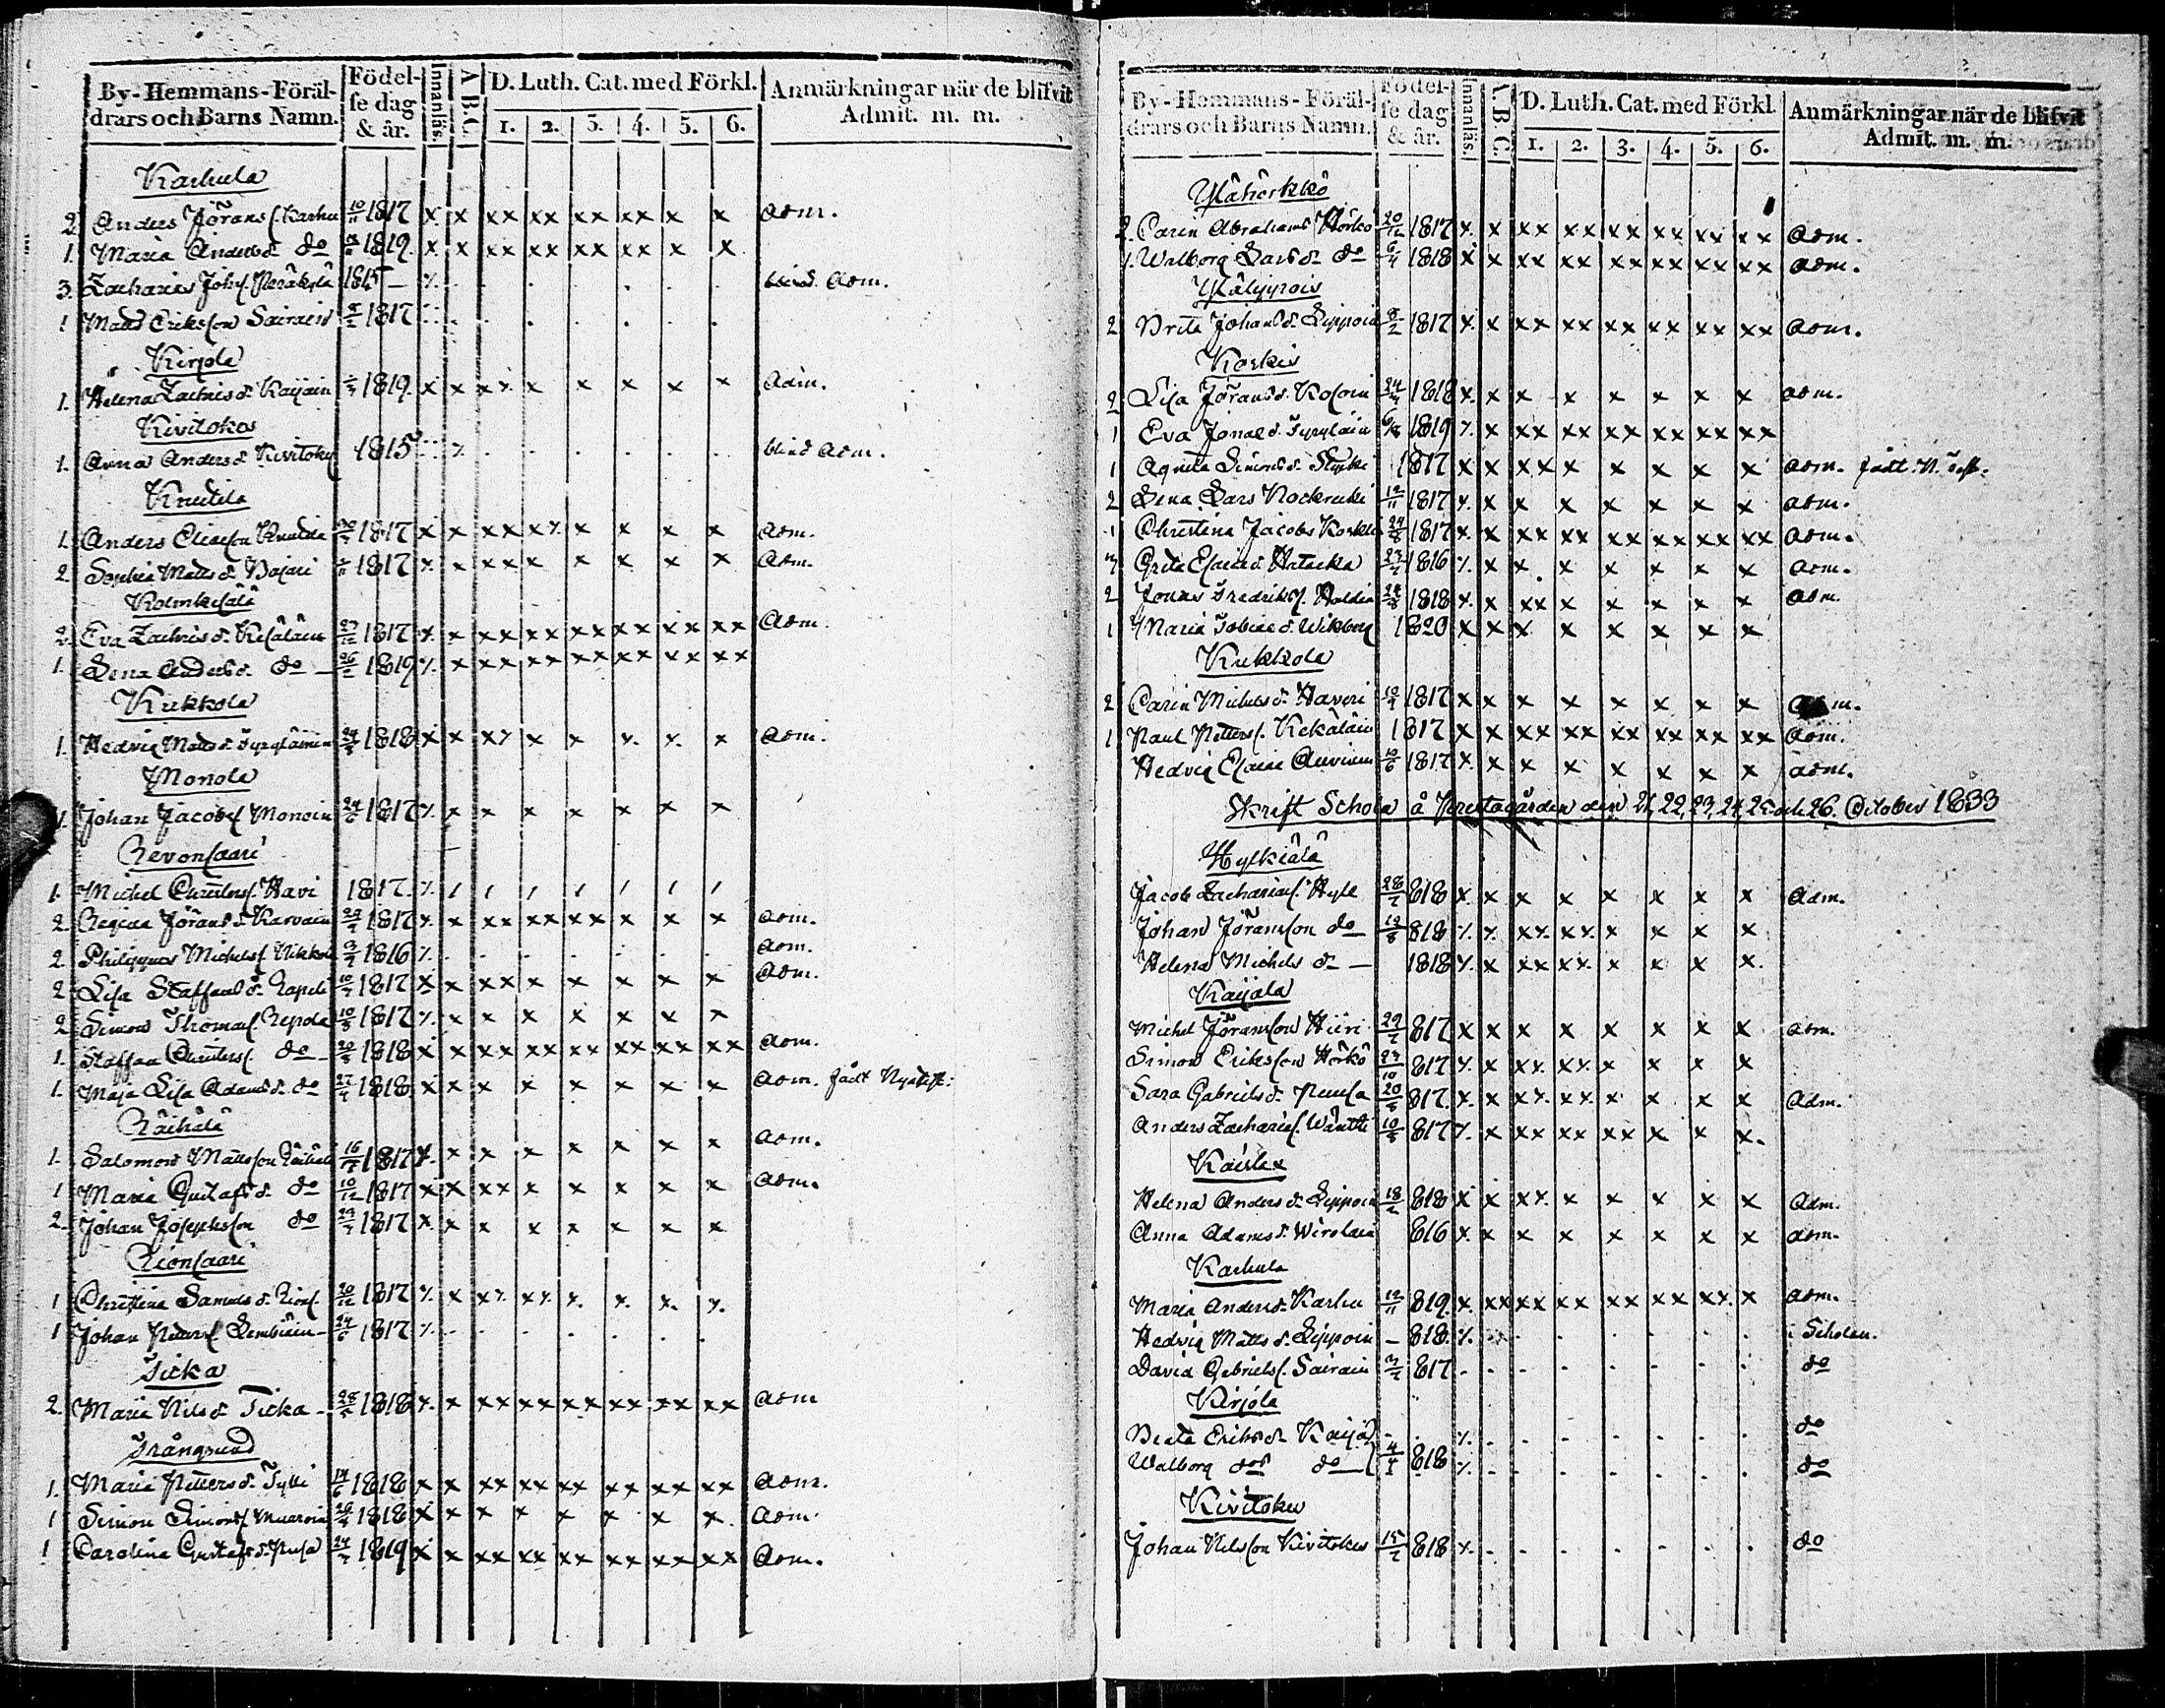 By-Hemmans-Föräl-
drars och Barns Namn.
Födel-
se dag
& år.
Innanläs.
A.B.C.
D. Luth. Cat. med Förkl.
1. 2. 3. 4. 5. 6.
Anmärkningar när de blifvit
Admit. m. m.
Karhula
2. Anders Jörans. Karhu 10/11 1817 x x xx xx xx xx x x adm.
1. Maria Anders d. do 1819. x x xx xx xx xx x x
3. Zacharias Johs. Peräkylä 1815 – blind. adm.
1 Matts Eriksson Sairain 1817
Kirjola
1. Helena Zachris d. Kaijain 1819. x x xx x x x x x adm.
Kivitokos
1. Anna Anders d. Kivitoku 1815 blind adm.
Knutila
1. Anders Eliasson Knutila 1817 x x xx xx x x x x adm.
2 Sophia Matts d. Pajari 1817 x x xx x x x x x adm.
Kolmkesälä
2. Eva Zachris d. Kesäläin 1817 x x xx xx xx xx xx xx adm
1. Lena Anders d. do – 1819 x x xx xx xx xx xx xx
Kukkola
1. Hedvig Matts d. 1818 x x xx x x x x x adm.
Monola
1. Johan Jacobs. Monoin 24/6 1817 x x x x x x x x
Revonsaari
1. Michel Christers. Havi 1817.
2. Regina Jörans d. Karvain 1817 x x xx xx xx x x x adm.
2. Philippus Michels. Nikkoi 1816 adm.
2. Lisa Staffans d. Rapeli 1817 x x xx x x x x x adm.
2. Simon Thomas. Repola 10/8 1817 x x x x x x x x
1. Staffan Christers. do – 1818 x x xx xx xx xx xx xx adm.
1. Maja Lisa Adams d. do 1818 x x xx x x x x x adm. fådt Nya test:
Räihälä
1. Salomon Mattsson Räihäl 1817 x x x x x x x x adm.
1 Maria Gustafs d. do 10/12 1817 x x xx x x x x x adm.
2. Johan Josephsson do 1817 x x x x x x x x
Rionsaari
1 Christina Samuels d. Rions. 20/12 1817 x x xx xx x x x x
1 Johan Petters. Lembiäin – 24/6 1817
Ticka
2. Maria Nils d. Ticka – 1818 x x xx xx xx xx xx xx adm
Trångsund
1. Maria Petters d. Tylli 14/6 1818 x x xx xx xx xx xx xx adm.
1 Simon Simons. Muuroin 1818 x x x x x x x x adm
1 Carolina Gustafs d. Pusa 1819 x x xx xx xx xx xx xx adm.
By-Hemmans-Föräl-
drars och Barns Namn.
Födel-
se dag
& år.
Innanläs.
A.B.C.
D. Luth. Cat. med Förkl.
1. 2. 3. 4. 5. 6.
Anmärkningar när de blifvit
Admit. m. m.
Ylähörkkö
2. Carin Abrahams Hörkö 20/12 1817 x x xx xx xx xx xx xx adm.
1. Walborg Lars d. do 1818 x x xx xx xx xx xx xx adm.
Yläleppois
2 Brita Johans d. Lippoin 8/2 1817 x x xx xx xx xx xx xx adm.
Koskis
2 Lisa Jörans d. Kosoin 1818 x x x x x x x x adm.
1 Eva Jonae d. 1819 x x xx xx xx xx xx xx
1 Agneta Simons d. 1817 x x xx x x x x x adm. fådt N. Test.
2 Lena Lars 12/11 1817 x x x x x x x x adm.
1 Christina Jacobs Koskki 1817 x x xx xx xx xx xx xx adm.
Greta Esaias d. Hatacka 1816 x x x x x x x adm.
2 Jonas Fredriks. 1818 x x xx x x x x x adm.
1 Maria Tobiae d. Wikberg 1820 x x x x x x x x
Kukkola
2 Carin Michels d. Haveri 1817 x x x x x x x x adm.
1 Paul Petters. Kekäläin 1817 x x xx xx xx xx xx xx adm.
Hedvig Esaiae Auvinen 10/6 1817 x x x x x x x x adm.
Skrift Schola å Prestagården den 21, 22, 23, 24, 25 och 26. October 1833
Hylkiälä
Jacob Zacharias. Hyle 818 x x x x x x x x adm.
Johan Jöransson do 818 x x xx xx x x x x
Helena Michels d. – 1818 x x xx xx x x x x
Kaijala
Michel Jöransson Hiiri 817 x x x x x x x x adm.
Simon Eriksson Hörkö 817 x x xx xx x x x x
Sara Gabriels d. Peusa 817. x x xx xx x x x x adm.
Anders Zacharis. Wäntti 10/8 817 x x xx xx xx x x x
Kaislax
Helena Anders d. Lippoin 18/2 818 x x xx x x x x x adm.
Anna Adams d. Wirolain 816 x x x x x x x x adm.
Karhula
Maria Anders d. Karhu 12/11 819. x xx xx xx xx xx xx x adm.
Hedvig Matts d. Lippoin – 818. i Scholan.
David Gabriels. Sairain 817 do
Kirjola
Beata Eriks d. Kaija do
Walborg do do 818 do
Kivitoku
Johan Nilsson Kivitokus 818 do